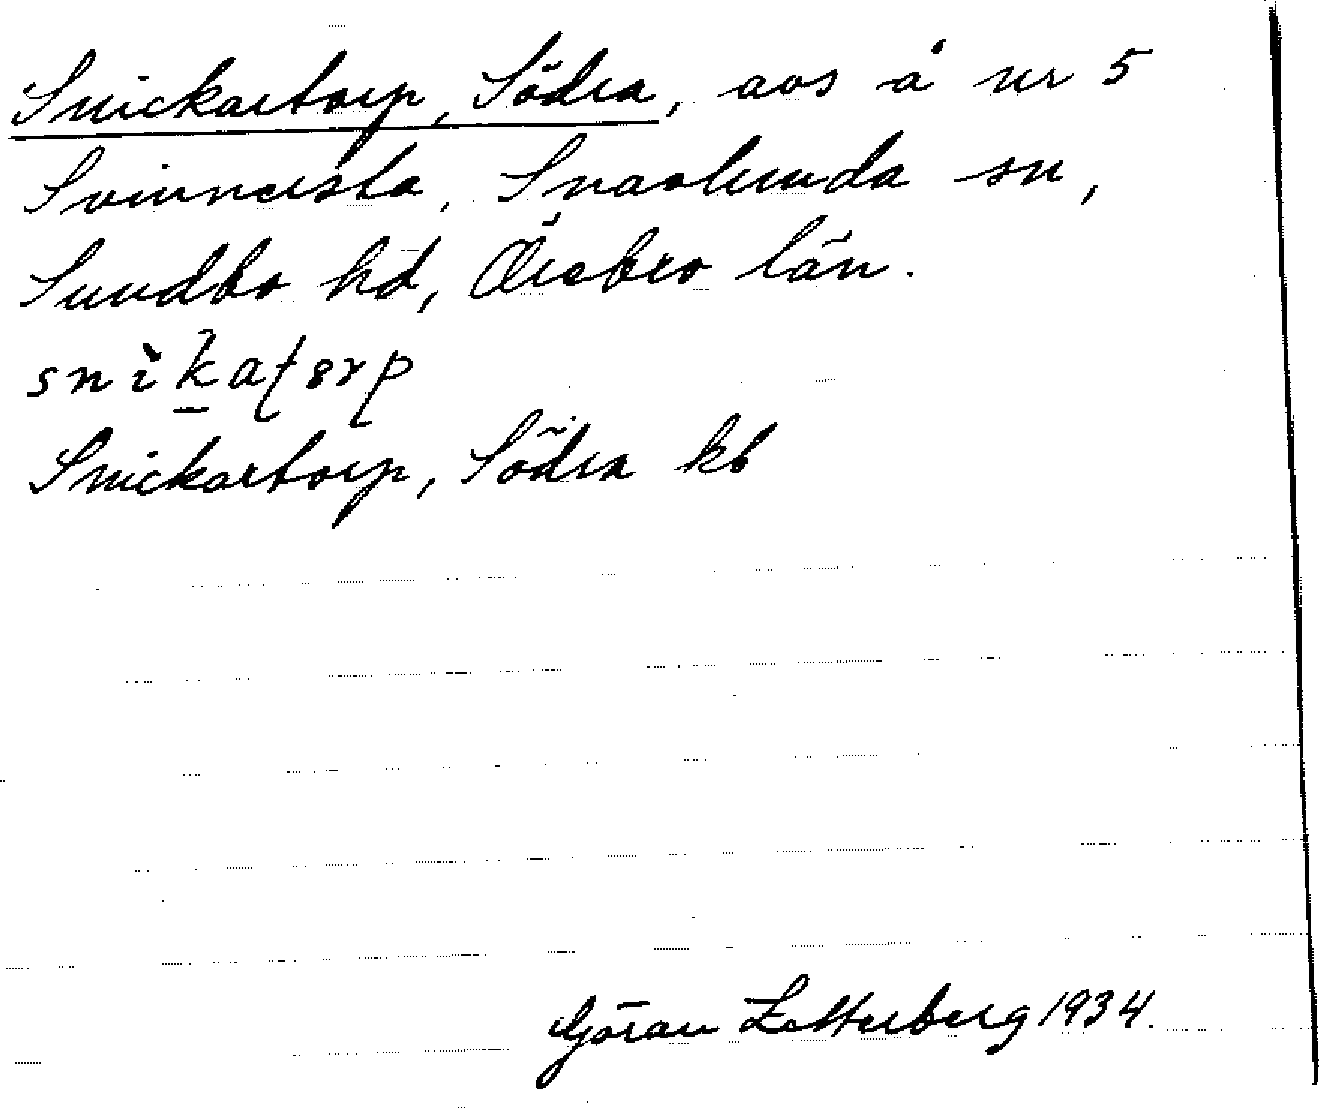 Snickartorp, Södra, avs å nr 5
Svinnersta, Snavlunda sn,
Sundbo hd, Örebro län.
Snickartorp, Södra kb
Göran Zetterberg 1934.